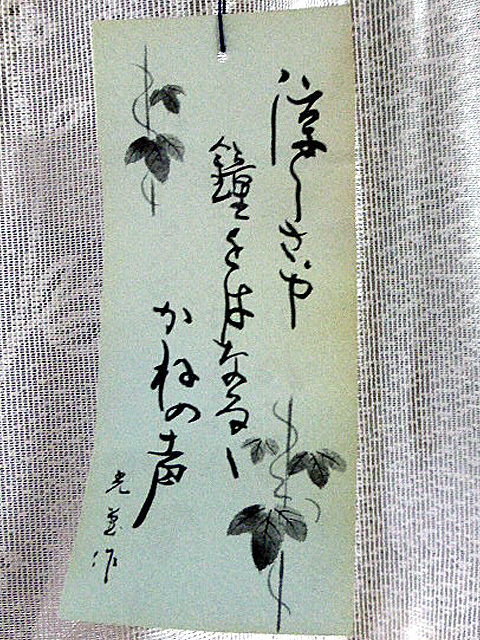 涼しさや
鐘をはなるゝ
かねの声